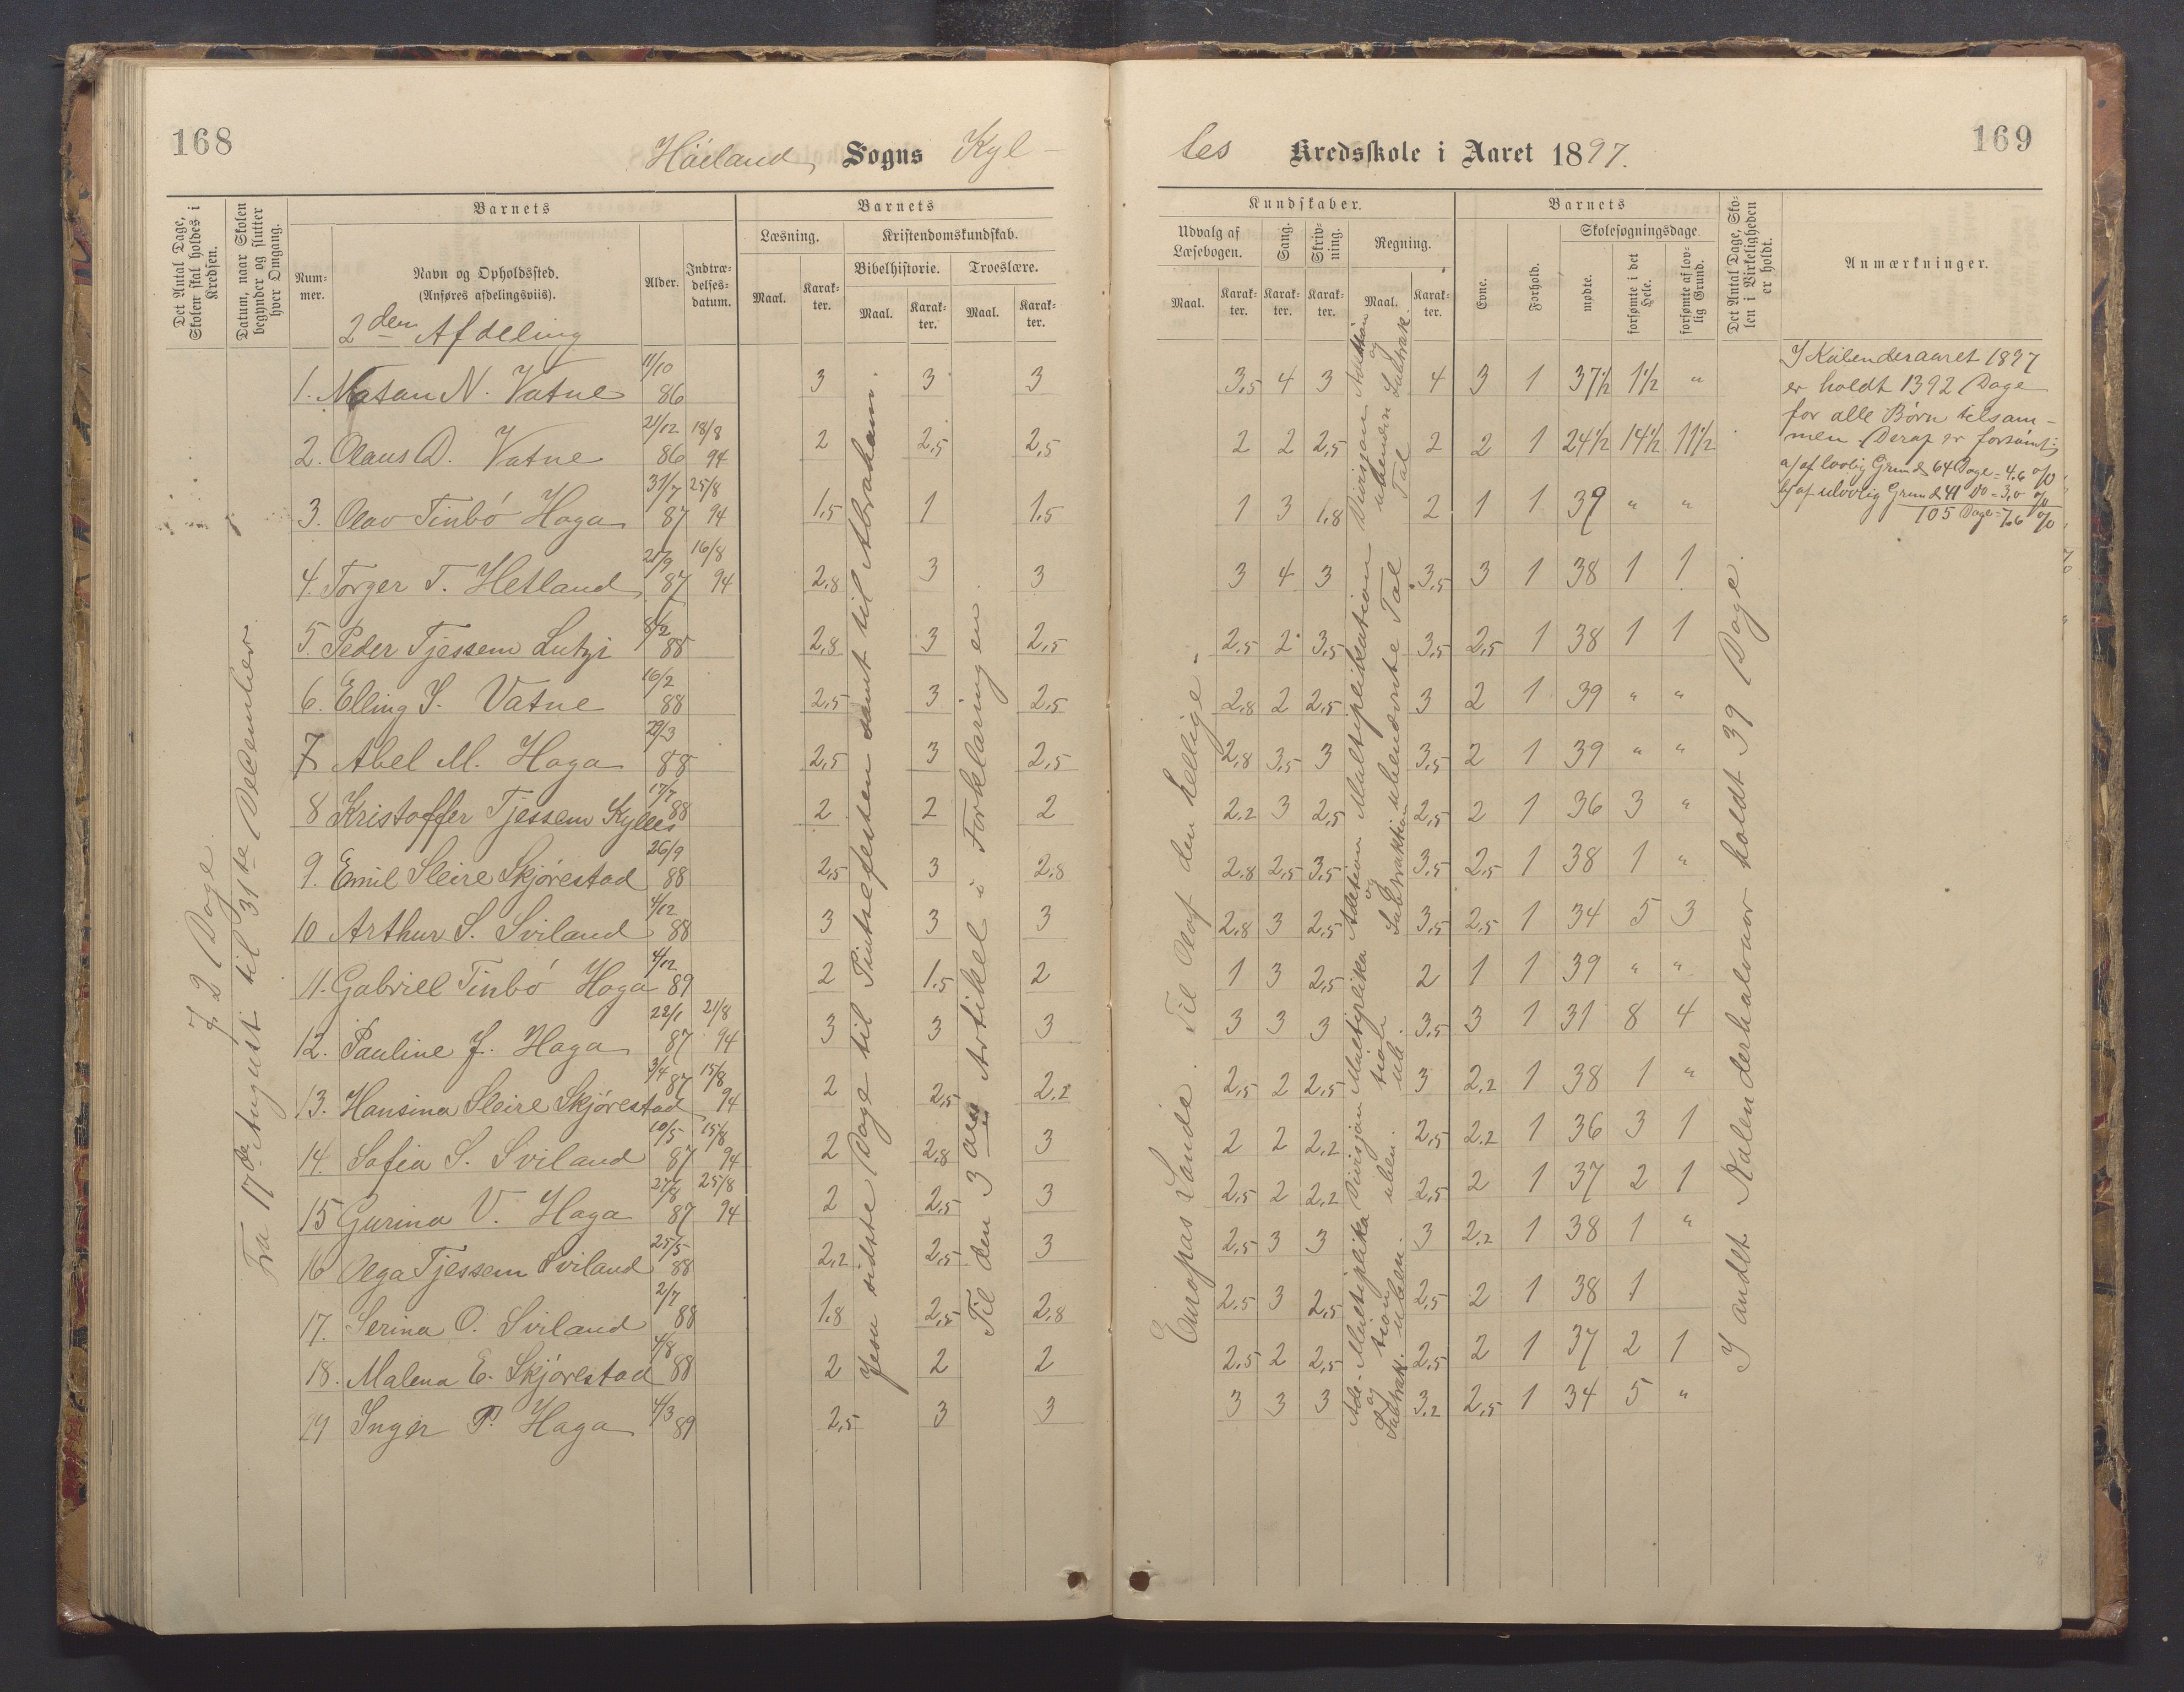 168
Höiland Sogns Kyl-
Det Antal Dage, Skolen skal holdes i Kredsen.
Datum, naar Skolen begynder og slutter hver Omgang.
Barnets
Barnets
Læsning.
Kristendomskundskab.
Nummer.
Navn og Opholdssted.
(Anføres afdelingsviis).
Alder.
Indtrædelsesdatum.
Maal.
Karakter.
Bibelhistorie.
Troeslære.
Maal.
Karakter.
Maal.
Karakter.
2den Afdeling
72 Dage
Fra 17de August til 31te December.
1. Natan N. Vatne 11/10 86 3 3 3
2. Olaus D. Vatne 21/12 86 18/8 94 2 2,5 2,5
3. Olav Tinbó Haga 31/7 87 25/8 94 1,5 1 1,5
4. Torger T. Hetland 21/9 87 16/8 94 2,8 3 3
5. Peder Tjessem Lutsi 8/2 88 2,8 3 2,5
6. Elling S. Vatne 16/2 88 2,5 3 2,5
7 Abel M. Haga 29/3 88 2,5 3 2,5
8 Kristoffer Tjessem Kylles 17/7 88 2 2 2
9. Emil Sleire Skjórestad 26/9 88 2,5 3 2,8
10 Arthur S. Sviland 4/12 88 3 3 3
11. Gabriel Tinbó Haga 4/12 89 2 1,5 2
12. Pauline J. Haga 22/1 87 21/8 94 3 3 3
13. Hansina Sleire Skjórestad 3/4 87 15/8 94 2 2,5 2,2
14. Sofia S. Sviland 10/5 87 15/8 94 2 2,8 3
15 Gurina V. Haga 27/8 87 25/8 94 2 2,5 3
16 Olga Tjessem Sviland 25/5 88 2,2 2,5 3
17. Serina O. Sviland 2/7 88 1,8 2,5 2,8
18. Malena E. Skjórestad 4/8 88 2 2 2
19 Inger P. Haga 4/3 89 2,5 3 3
Jesu sidste Dage til Pintsefesten samt til Abraham.
Til den 3die Artikel i Forklaringen.
les Kredsskole i Aaret 1897.
169
Kundskaber.
Barnets
Udvalg af Læsebogen.
Sang.
Skrivning.
Regning.
Maal.
Karakter.
Karakter.
Karakter.
Maal.
Karakter.
Evne.
Forhold.
Skolesøgningsdage
mødte.
forsømte i det Hele.
forsømte af lovlig Grund.
Det Antal Dage, Skolen i Virkeligheden er holdt.
Anmærkninger.
Europas Lande. Til Olaf den hellige.
3,5 4 3 4 3 1 37½ 1½ "
2 2 2,5 2 2 1 24½ 14½ 11½
1 3 1,8 2 1 1 39 " "
3 4 3 3,5 3 1 38 1 1
2,5 2 3,5 3,5 2,5 1 38 1 1
2,8 2 2,5 3 2 1 39 " "
2,8 3,5 3 3,5 2 1 39 " "
2,2 3 2,5 2,5 2 1 36 3 "
2,8 2,5 3,5 3,5 2,5 1 38 1 "
2,8 3 2,5 3,5 2,5 1 34 5 3
1 3 2,5 2 1 1 39 " "
3 3 3 3,5 3 1 31 8 4
2,5 2 2,5 3 2,2 1 38 1 "
2 2 2,2 2,5 2,2 1 36 3 1
2,5 2 2,2 2,5 2 1 37 2 1
2,5 3 3 3 2,2 1 38 1 "
2,5 3 2,5 2,5 2 1 38 1
2,5 2 2,5 2,5 2 1 37 2 1
3 3 3 3,2 2,5 1 34 5 "
Addition og Subtrak.
Divisjon ubenævn Tal
Multiplikation ubenævnte Tal
Addition og Subtraktion
Multiplikation ub.
Divisjon uben.
Multiplikation uben.
Add. og Subtrak.
I andet Kalenderhalvaar holdt 39 Dage.
I Kalenderaaret 1897
er holdt 1392 Dage
for alle Børn tilsam-
men. Deraf er forsømt:
a) af lovlig Grund 64 Dage = 4,6 %
b) af ulovlig Grund 41 Do = 3,0 %
105 Dage = 7,6 %